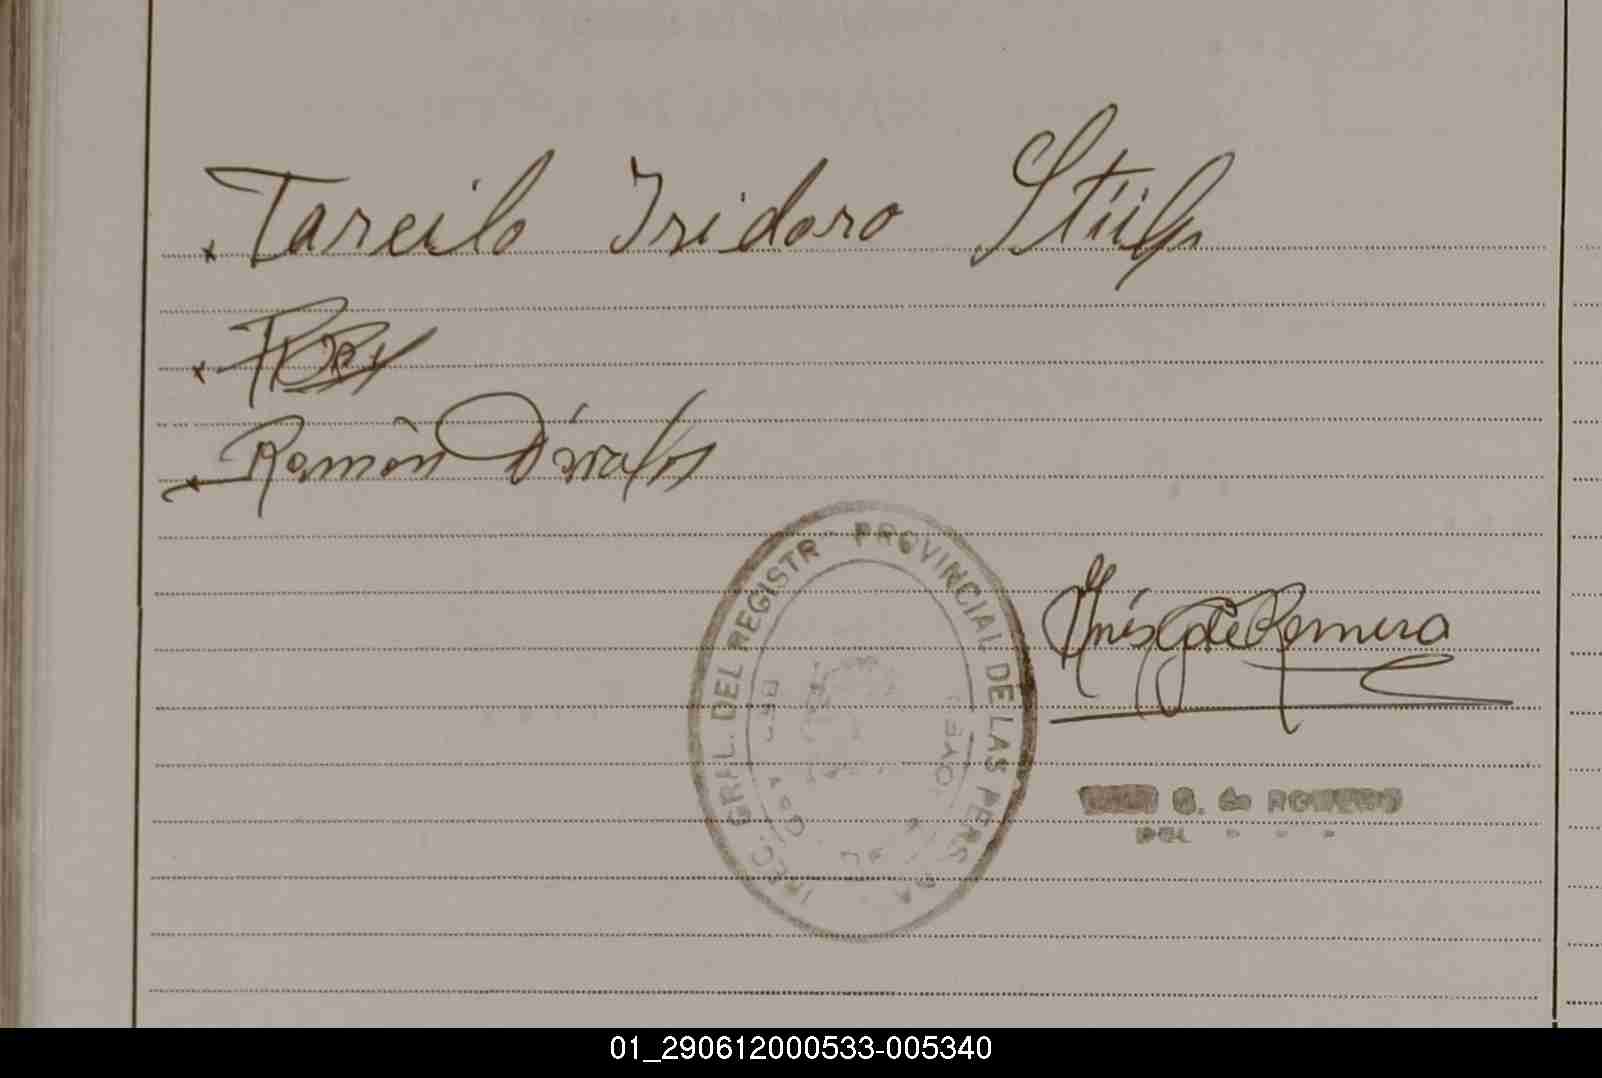 Tarcilo Isidoro Stülp
Ramón Dávalos
DIREC. GRAL. DEL REGISTR PROVINCIAL DE LAS PERS
Inés G de Romero
G. de ROMERO
01_290612000533-005340